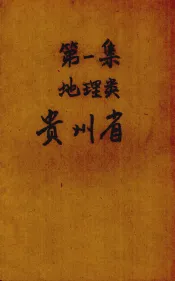 第一集
地理类
贵州省